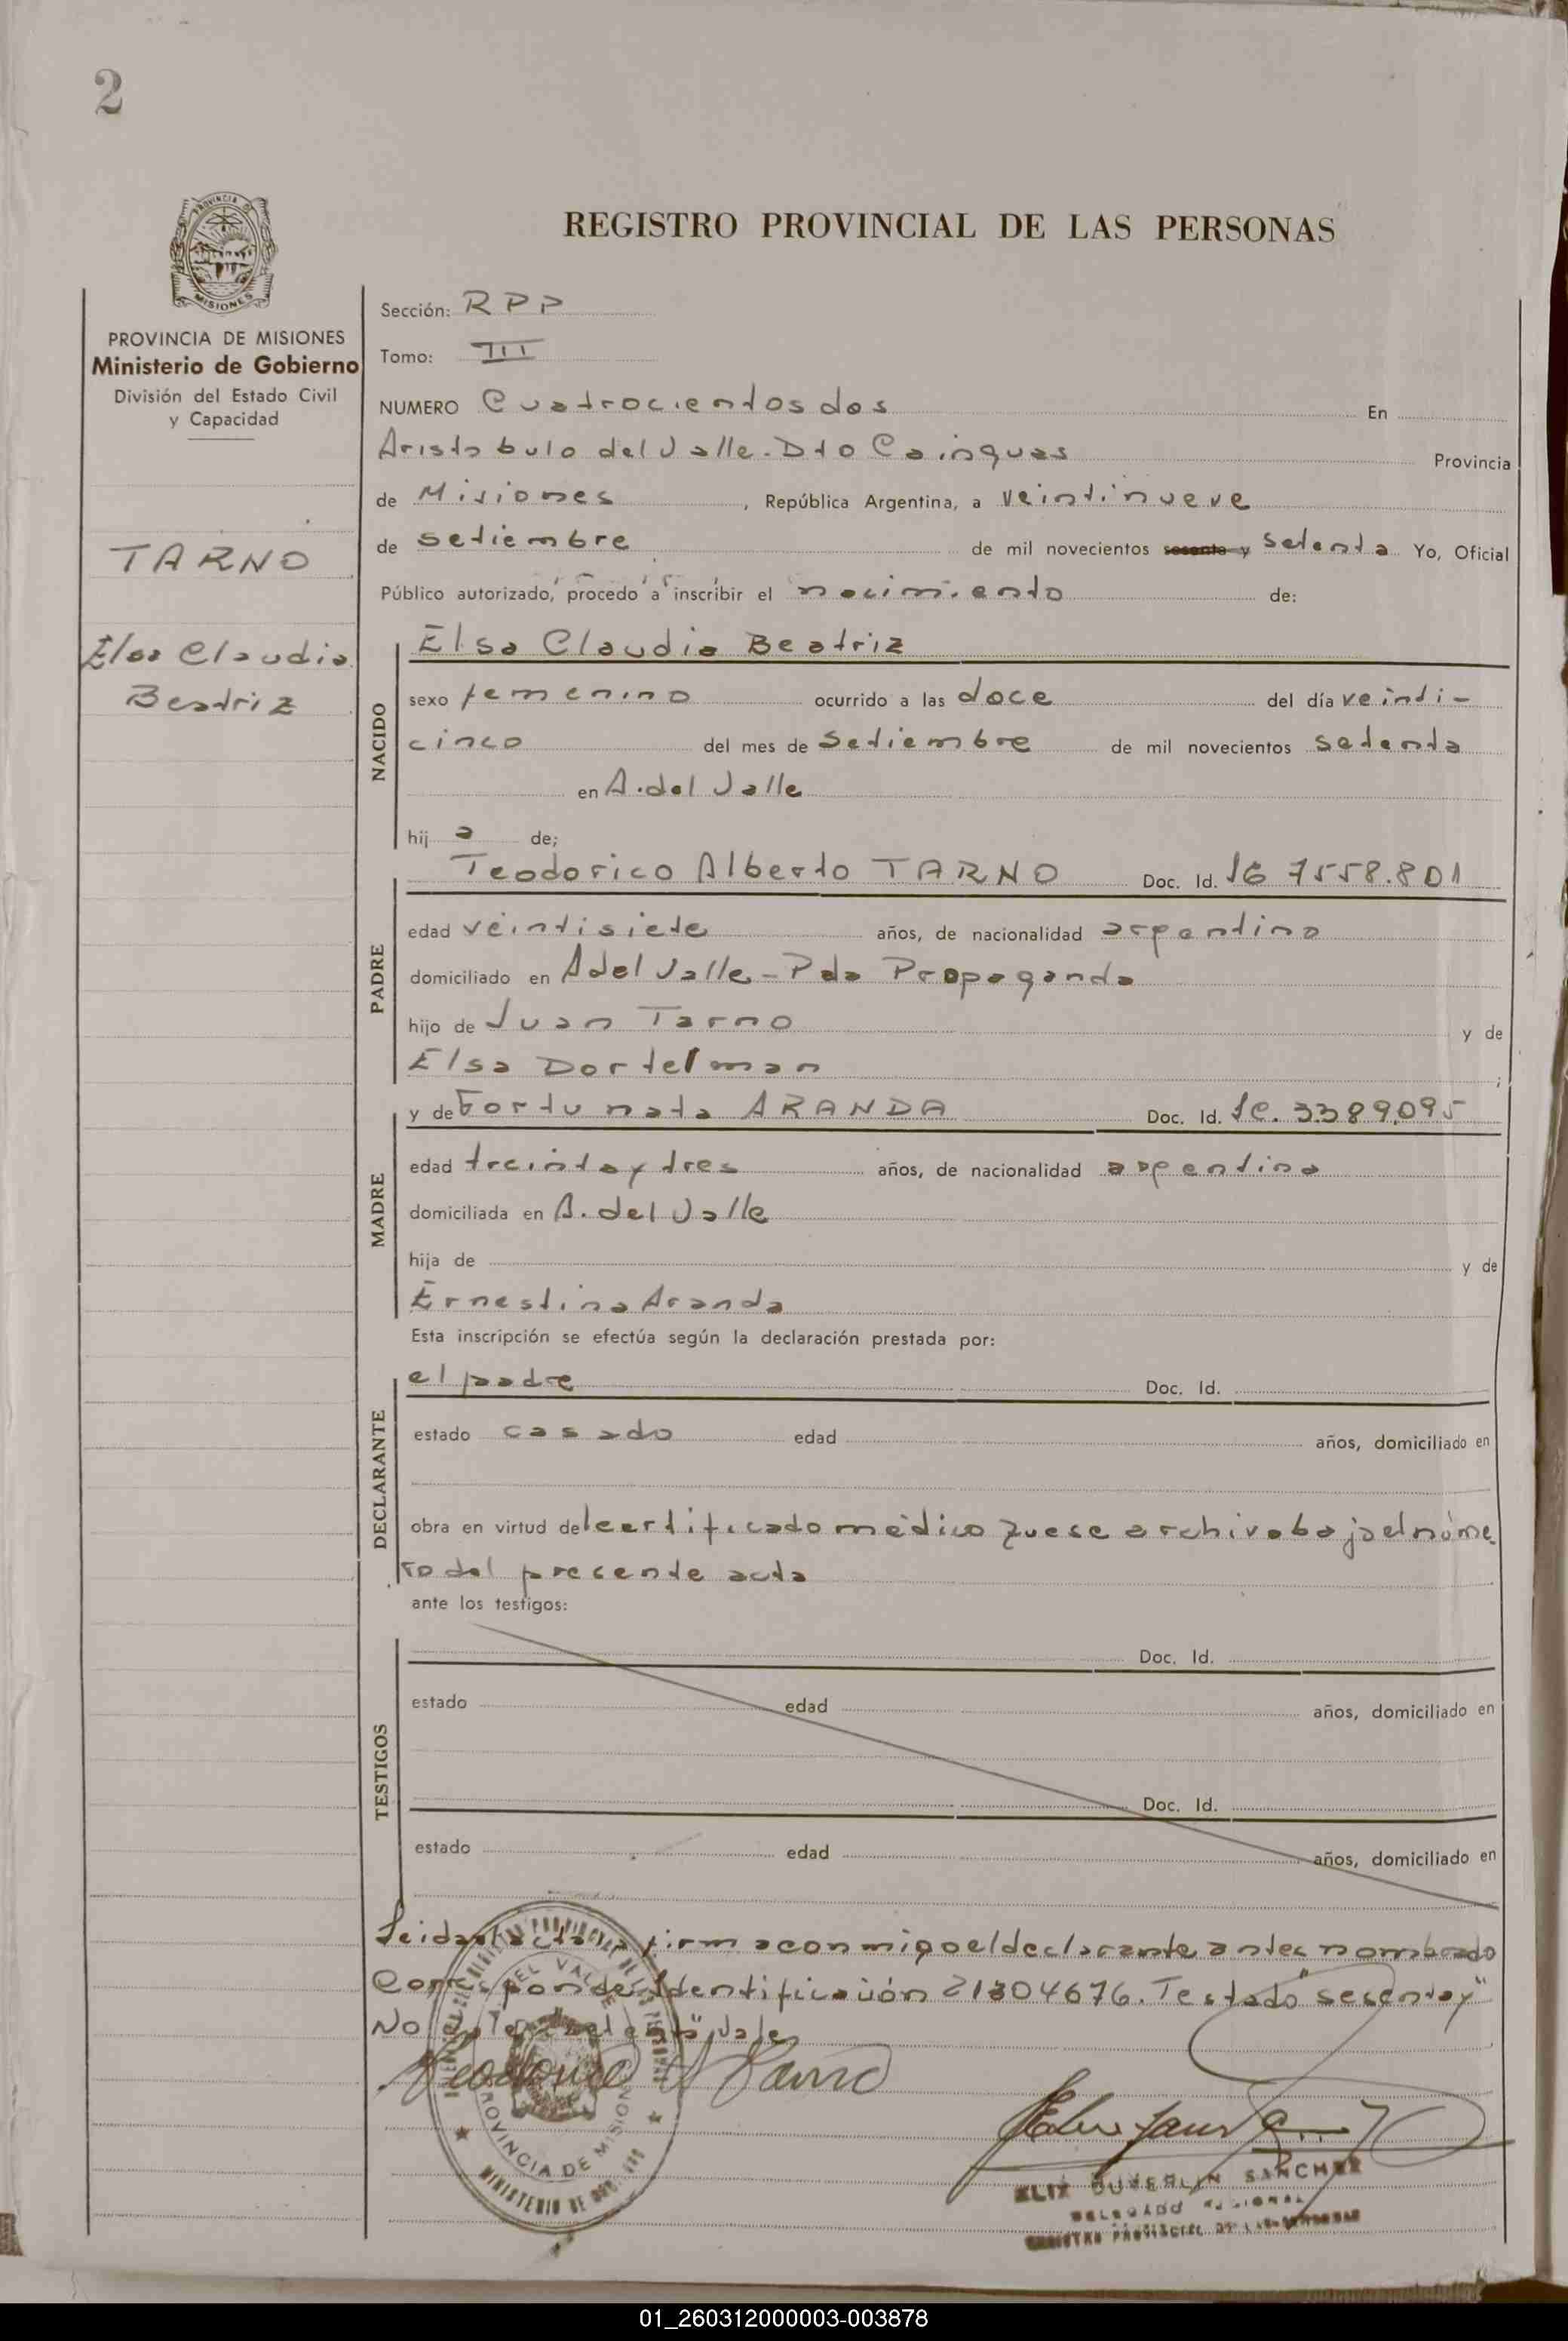 2
PROVINCIA DE MISIONES
Ministerio de Gobierno
División del Estado Civil
y Capacidad
TARNO
Elsa Claudia
Beatriz
REGISTRO PROVINCIAL DE LAS PERSONAS
Sección: RPP
Tomo: III
NUMERO Cuatrocientos dos En
Aristobulo del Valle - Dto Cainguas Provincia
de Misiones, República Argentina, a veintinueve
de setiembre de mil novecientos sesenta y setenta Yo, Oficial
Público autorizado, procedo a inscribir el nacimiento de:
NACIDO
Elsa Claudia Beatriz
sexo femenino ocurrido a las doce del día veinti-
cinco del mes de Setiembre de mil novecientos setenta
en A. del Valle
hij a de;
PADRE
Teodorico Alberto TARNO Doc. Id. 7558.801
edad veintisiete años, de nacionalidad argentina
domiciliado en A del Valle - Pda Propaganda
hijo de Juan Tarno y de
Elsa Dortelman ;
MADRE
y de Fortunata ARANDA Doc. Id. LC. 3.389.095
edad treinta y tres años, de nacionalidad argentina
domiciliada en A. del Valle
hija de y de
Ernestina Aranda
Esta inscripción se efectúa según la declaración prestada por:
DECLARANTE
el padre Doc. Id.
estado casado edad años, domiciliado en
obra en virtud del certificado médico que se archiva bajo el núme
ro del presente acta
ante los testigos:
TESTIGOS
Doc. Id.
estado edad años, domiciliado en
Doc. Id.
estado edad años, domiciliado en
Leida el acta la firma conmigo el declarante antes nombrado
Corresponde Identificación 21304676. Testado "sesenta y"
No vale
PROVINCIA DE MISIONES
MINISTERIO DE
SANCHEZ
DELEGADO
REGISTRO PROVINCIAL DE LAS PERSONAS
01_260312000003-003878